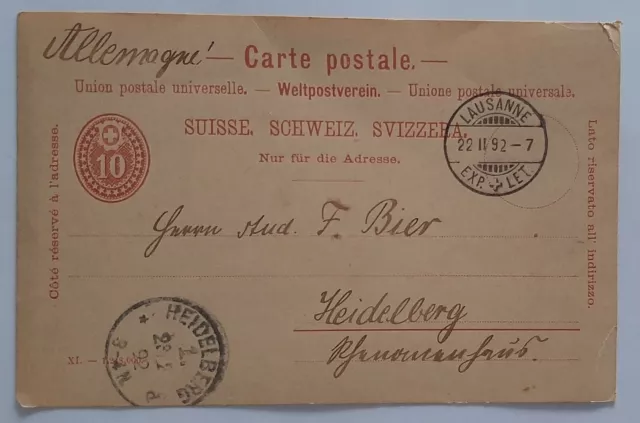 Allemagne — Carte postale. —
Union postale universelle. — Weltpostverein. — Unione postale universale.
SUISSE. SCHWEIZ. SVIZZERA.
Nur für die Adresse.
10
LAUSANNE
22 II 92 – 7
EXP. LET.
Côté réservé à l'adresse.
Lato riservato all' indirizzo.
Herrn stud. F. Bier
Heidelberg
Rhenanenhaus.
HEIDELBERG
XI.